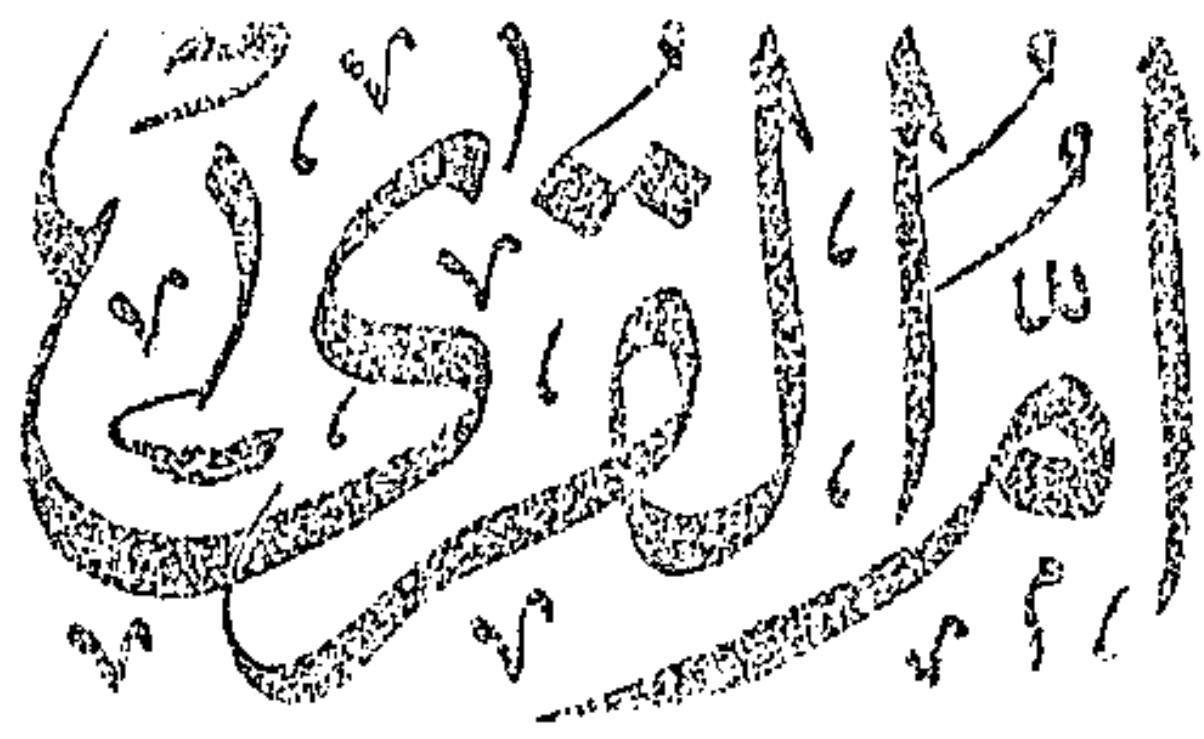 أم القرى